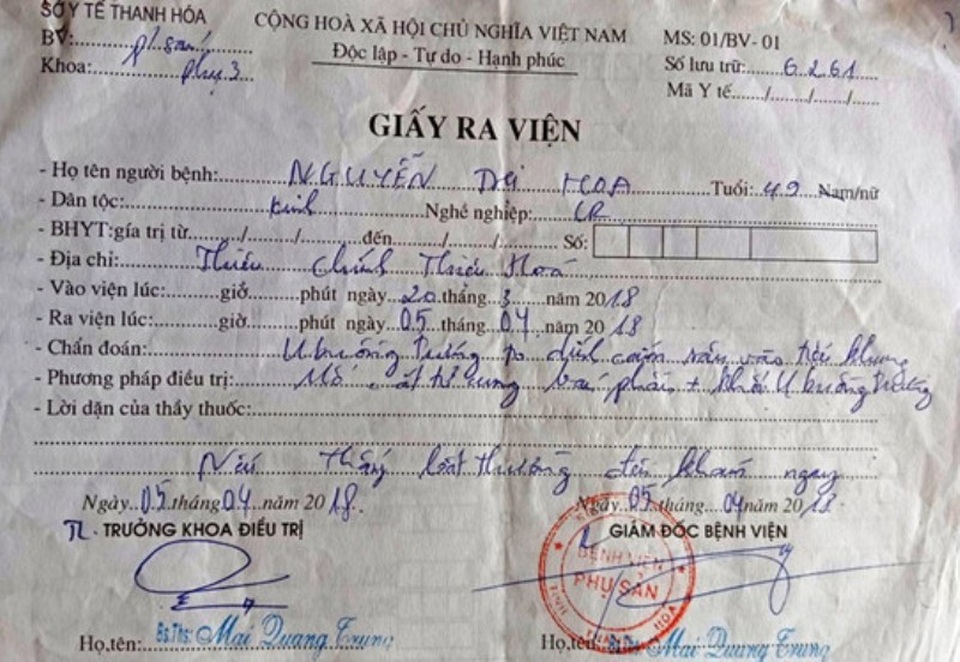 SỞ Y TẾ THANH HÓA
BV: p/sản
Khoa: phụ 3
CỘNG HOÀ XÃ HỘI CHỦ NGHĨA VIỆT NAM
Độc lập - Tự do - Hạnh phúc
MS: 01/BV- 01
Số lưu trữ: 6261
Mã Y tế....../....../....../......
GIẤY RA VIỆN
- Họ tên người bệnh: NGUYỄN HOA Tuổi: 49 Nam/nữ
- Dân tộc: Kinh Nghề nghiệp: LR
- BHYT:gía trị từ......./......./.......đến......./......./....... Số:
- Địa chỉ: Thiệu Chính Thiệu Hoá
- Vào viện lúc:.......giờ.......phút ngày 20 tháng 3 năm 2018
- Ra viện lúc:.......giờ.......phút ngày 05 tháng 04 năm 2018
- Chẩn đoán: U buồng trứng dính vào tiểu khung
- Phương pháp điều trị: Mổ cắt tử cung phải + khối U buồng trứng
- Lời dặn của thầy thuốc:
Nếu thấy bất thường đến khám ngay
Ngày 05 tháng 04 năm 2018
TL. TRƯỞNG KHOA ĐIỀU TRỊ
Họ,tên: Bs.Ths: Mai Quang Trung
Ngày 05 tháng 04 năm 2018
GIÁM ĐỐC BỆNH VIỆN
BỆNH VIỆN
PHỤ SẢN
Họ,tên: Mai Quang Trung